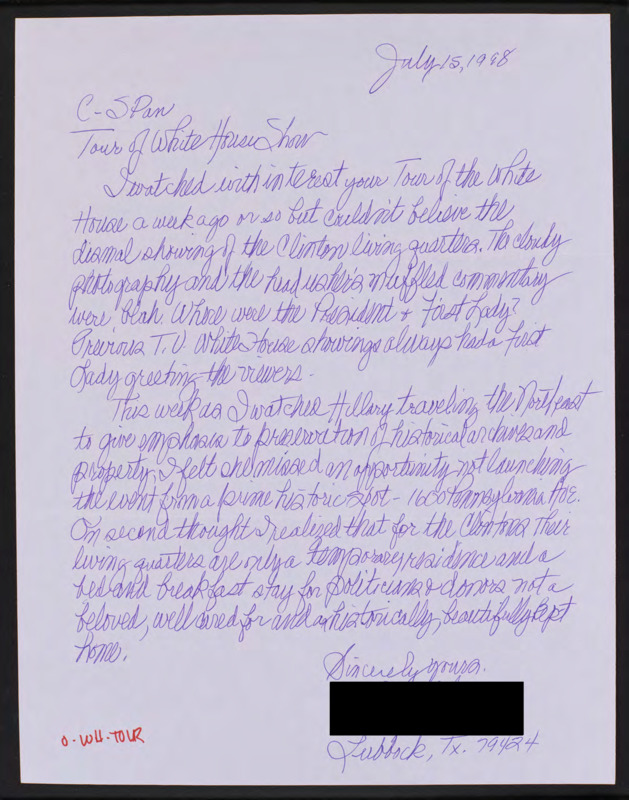 July 15, 1998
C-SPan
Tour of White House Show
I watched with interest your Tour of the White
House a week ago or so but couldn't believe the
dismal showing of the Clinton living quarters. The cloudy
photography and the head usher's muffled commentary
were blah. Where were the President & First Lady?
Previous T.V. White House showings always had a First
Lady greeting the viewers.
This week as I watched Hillary traveling the Northeast
to give emphasis to preservation of historical archives and
property, I felt she missed an opportunity not launching
the event from a prime historic spot - 1600 Pennsylvania Ave.
On second thought I realized that for the Clintons their
living quarters are only a temporary residence and a
bed and breakfast stay for politicians & donors not a
beloved, well cared for and historically, beautifully kept
home.
Sincerely yours.
Lubbock, Tx. 79424
O-WH-TOUR